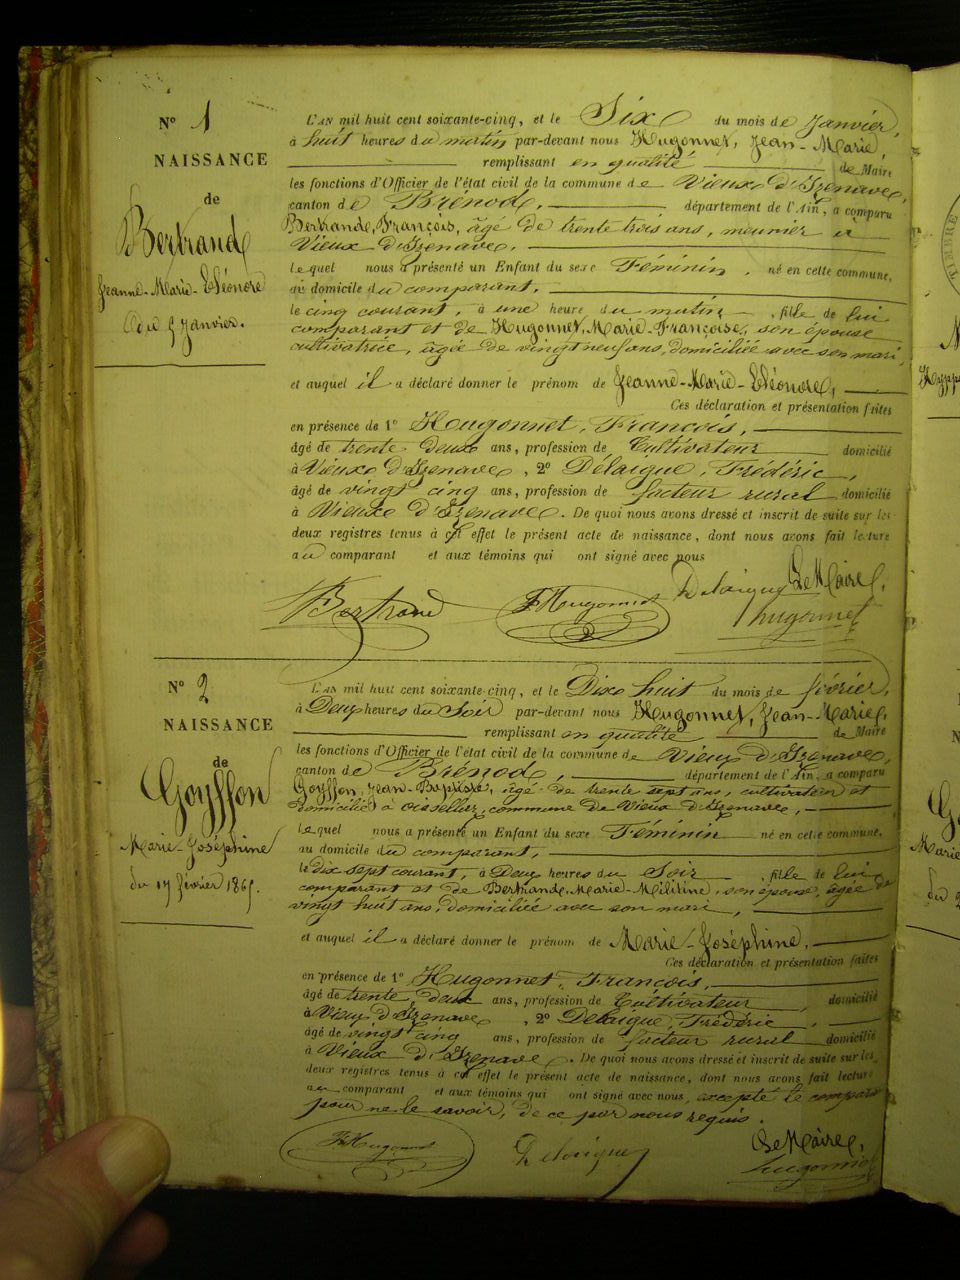 N° 1
NAISSANCE
de
Bertrand
Jeanne-Marie-Eléonore
du 5 Janvier.
L'AN mil huit cent soixante-cinq, et le Six du mois de Janvier,
à huit heures du matin par-devant nous Hugonnet, Jean-Marie,
remplissant en qualité de Maire
les fonctions d'Officier de l'état civil de la commune de Vieux d'Izenave,
canton de Brénod, département de l'Ain, a comparu
Bertrand, François, âgé de trente trois ans, meunier à
Vieux d'Izenave,
lequel nous a présenté un Enfant du sexe Féminin, né en cette commune,
au domicile du comparant,
le cinq courant, à une heure du matin, fille de lui
comparant et de Hugonnet, Marie-Françoise, son épouse
cultivatrice, âgée de vingt neuf ans, domiciliée avec son mari,
et auquel il a déclaré donner le prénom de Jeanne-Marie-Eléonore,
Ces déclaration et présentation faites
en présence de 1° Hugonnet, François,
âgé de trente deux ans, profession de Cultivateur domicilié
à Vieux d'Izenave, 2° Delaigue, Frédéric,
âgé de vingt cinq ans, profession de facteur rural domicilié
à Vieux d'Izenave. De quoi nous avons dressé et inscrit de suite sur les
deux registres tenus à cet effet le présent acte de naissance, dont nous avons fait lecture
au comparant et aux témoins qui ont signé avec nous
Bertrand F Hugonnet Delaigue Le Maire,
hugonnet
N° 2
NAISSANCE
de
Goyffon
Marie-Joséphine
du 17 février 1865.
L'AN mil huit cent soixante-cinq, et le Dix huit du mois de février,
à Deux heures du Soir par-devant nous Hugonnet, Jean-Marie,
remplissant en qualité de Maire
les fonctions d'Officier de l'état civil de la commune de Vieux d'Izenave,
canton de Brénod, département de l'Ain, a comparu
Goyffon, Jean-Baptiste, âgé de trente sept ans, cultivateur et
domicilié à oisellaz, commune de Vieux d'Izenave,
lequel nous a présenté un Enfant du sexe Féminin né en cette commune,
au domicile du comparant,
le dix sept courant, à Deux heures du Soir, fille de lui
comparant et de Bertrand, Marie-Mélitine, son épouse, âgée de
vingt huit ans, domiciliée avec son mari,
et auquel il a déclaré donner le prénom de Marie-Joséphine,
Ces déclaration et présentation faites
en présence de 1° Hugonnet, François,
âgé de trente deux ans, profession de Cultivateur domicilié
à Vieux d'Izenave, 2° Delaigue, Frédéric,
âgé de vingt cinq ans, profession de facteur rural domicilié
à Vieux d'Izenave. De quoi nous avons dressé et inscrit de suite sur les
deux registres tenus à cet effet le présent acte de naissance, dont nous avons fait lecture
au comparant et aux témoins qui ont signé avec nous, excepté le compart
pour ne le savoir, de ce par nous requis.
F Hugonnet Delaigue Le Maire,
hugonnet
TIMBRE